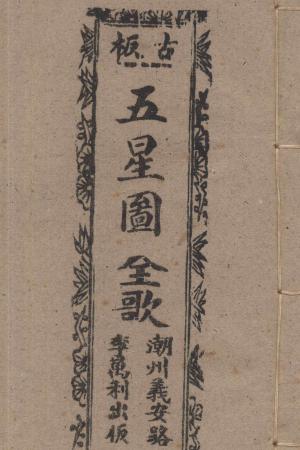 古板
五星圖全歌
潮州義安路
李萬利出版